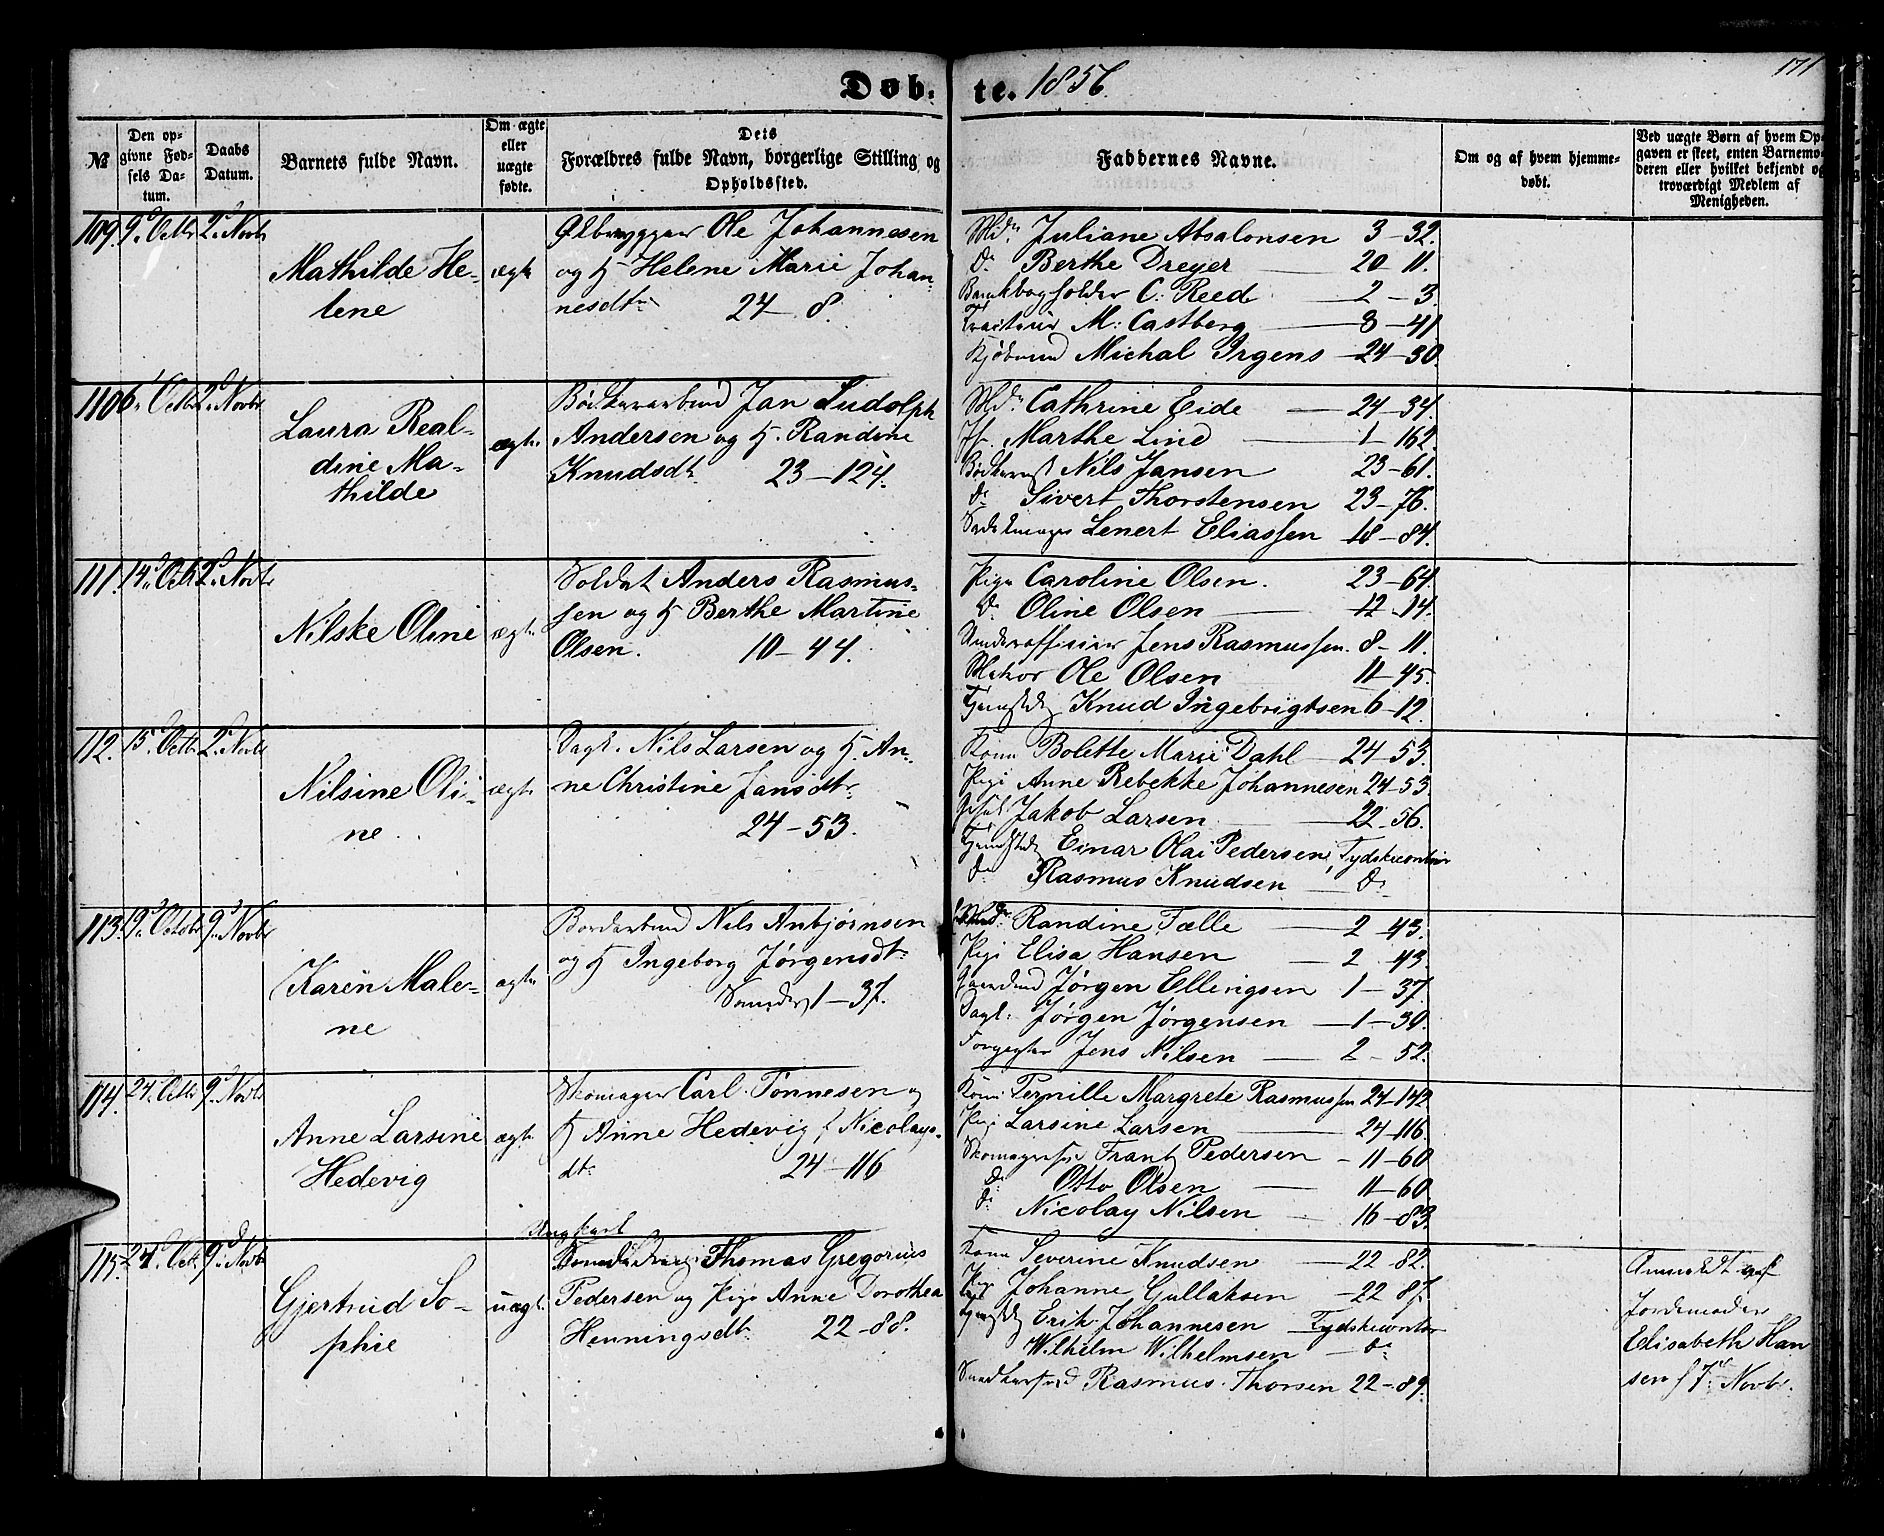 171
Døb. te. 1856
№
Den op-
givne Fød-
sels Da-
tum.
Daabs
Datum.
Barnets fulde Navn.
Om ægte
eller
uægte
fødte.
Dets
Forældres fulde Navn, borgerlige Stilling og
Opholdssted.
Faddernes Navne.
Om og af hvem hjemme-
døbt.
Ved uægte Børn af hvem Op-
gaven er skeet, enten Barnemo-
deren eller hvilket bekjendt og
troværdigt Medlem af
Menigheden.
109. 9d Octbr 2d Novbr
Mathilde He-
lene
ægte
Ølbrygger Ole Johannesen
og H Helene Marie Johan-
nesdtr 24 8.
Md. Juliane Absalonsen 3-32.
Do Berthe Dreyer 20-11.
Bankbogholder C: Reed 2-3.
M: Castberg 8-41
Kjøbmd Michal Irgens 24-30
110 6' Octbr 2d Novbr
Laura Real-
dine Ma-
thilde
ægte
Bødkerarbmd Jan Ludolph
Andersen og H. Randine
Knudsdtr 23-124.
Md. Cathrine Eide 24-34.
Jfr. Marthe Lind 1-162
Nils Jansen 23-61.
Do Sivert Thorstensen 23-76.
Lenert Eliassen 18-84.
111. 14d Octbr 2d Novbr
Nilske Oline
ægte
Soldat Anders Rasmus-
sen og H Berthe Martine
Olsen. 10-44.
Pige Caroline Olsen. 23-64
Do Oline Olsen 12-14.
Underofficier Jens Rasmussen. 8-11.
Ole Olsen 11-45.
Knud Ingebrigtsen 6-12.
112. 15d Octbr 2d Novbr
Nilsine Oli-
ne
ægte
Dagl. Nils Larsen og H. An-
ne Christine Jansdtr
24-53.
Kone Bolette Marie Dahl 24-53.
Pige Anne Rebekke Johannesen 24-53
Jakob Larsen 22-56.
Einar Olai Pedersen, Tydskecontoir
Do Rasmus Knudsen Do
113. 19d Octobr 9d Novbr
Karen Male-
ne
ægte
Bordarbmd Nils Anbjørnsen
og H Ingeborg Jørgensdtr
1-37.
Randine Fælle 2 43.
Pige Elisa Hansen 2 43.
Jørgen Ellingsen 1-37
Dagl. Jørgen Jørgensen 1-39.
Jens Nilsen 2-52.
114. 24. Octbr 9d Novbr
Anne Larsine
Hedevig
ægte
Skomager Carl Tønnesen og
H Anne Hedevig f Nicolays-
dtr 24-116
Kone Pernille Margrete Rasmussen 24-142
Pige Larsine Larsen 24-116.
Skomagersv Frantz Pedersen 11-60
Do Otto Olsen 11-60.
Do Nicolay Nilsen 16-83
115. 24d Oct. 9d Novbr
Gjertrud So-
phie
uægte
Ungkarl
Thomas Gregorius
Pedersen og Pige Anne Dorothea
Henningsdtr 22-88.
Kone Severine Knudsen 22-82.
Pige Johanne Gullaksen 22 87.
Erik Johannesen Tydskecontor
Wilhelm Wilhelmsen Do
Rasmus Thorsen 22-89.
Anmeldt af
Jordemoder
Elisabeth Han
sen f 7d Novbr.